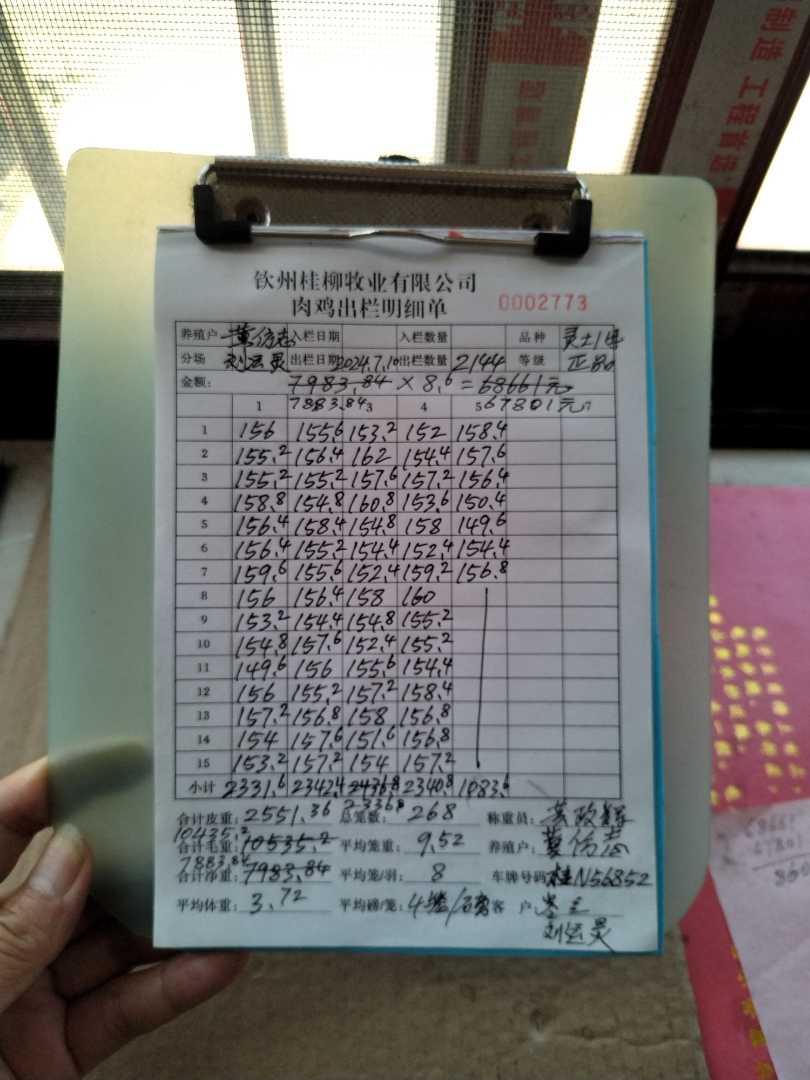 制造 工程首选
钦州桂柳牧业有限公司
肉鸡出栏明细单 0002773
养殖户 入栏日期 入栏数量 品种 灵土1号
分场 刘运灵 出栏日期 2024.7.10 出栏数量 2144 等级 正品
金额: 7983.84 × 8.6 = 68661元
1 7883.84 3 4 5 67801元 7
1 156 155.6 153.2 152 158.4
2 155.2 156.4 162 154.4 157.6
3 155.2 155.2 157.6 157.2 156.4
4 158.8 154.8 160.8 153.6 150.4
5 156.4 158.4 154.8 158 149.6
6 156.4 155.2 154.4 152.4 154.4
7 159.6 155.6 152.4 159.2 156.8
8 156 156.4 158 160
9 153.2 154.4 154.8 155.2
10 154.8 157.6 152.4 155.2
11 149.6 156 155.6 154.4
12 156 155.2 157.2 158.4
13 157.2 156.8 158 156.8
14 154 157.6 151.6 156.8
15 153.2 157.2 154 157.2
小计 2331.6 2342.4 2436.8 2340.8 1083.6
2336.8
合计皮重: 2551.36 总笼数: 268 称重员:
10435.2
合计毛重: 10535.2 平均笼重: 9.52 养殖户:
7883.84
合计净重: 7983.84 平均笼/羽: 8 车牌号码 桂N56852
平均体重: 3.72 平均磅/笼: 客户:
刘运灵
68661
67801
860